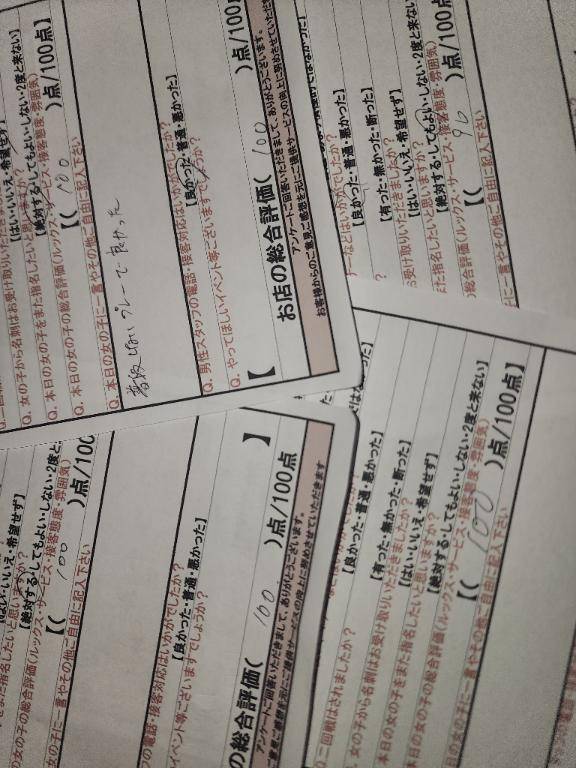 【はい・いいえ・希望せず】
Q. 女の子から名刺はお受け取りいただ
【絶対する!してもよい・しない・2度と来ない】
Q. 本日の女の子をまた指名したいと思いますか?
Q. 本日の女の子の総合評価(ルックス・サービス・接客態度・雰囲気)
【( 100 )点/100点】
Q. 本日の女の子に一言やその他ご自由に記入下さい
プレーで良かった
Q. 男性スタッフの電話・接客対応はいかがでしたか?
【良かった・普通・悪かった】
Q. やってほしいイベント等ございますでしょうか?
【
お店の総合評価( 100 )点/100点
アンケートに回答いただきまして、ありがとうございます。
お客様からのご意見ご感想を元にご提供サービスの向上に努めさせていただき
【良かった・普通・悪かった】
【有った・無かった・断った】
お受け取りいただきましたか?
【はい・いいえ・希望せず】
また指名したいと思いますか?
【絶対する!してもよい・しない・2度と来ない】
総合評価(ルックス・サービス・接客態度・雰囲気)
【( 96 )点/100点】
に一言やその他ご自由に記入下さい
【はい・いいえ・希望せず】
をまた指名したいと思いますか?
【絶対する!してもよい・しない・2度と
の女の子の総合評価(ルックス・サービス・接客態度・雰囲気)
【( 100 )点/100
女の子に一言やその他ご自由に記入下さい
の電話・接客対応はいかがでしたか?
【良かった・普通・悪かった】
イベント等ございますでしょうか?
】
の総合評価( 100 )点/100点
アンケートに回答いただきまして、ありがとうございます。
ご意見ご感想を元にご提供サービスの向上に努めさせていただきます
【良かった・普通・悪かった】
二回戦はされましたか?
【有った・無かった・断った】
女の子から名刺はお受け取りいただきましたか?
【はい・いいえ・希望せず】
本日の女の子をまた指名したいと思いますか?
【絶対する!してもよい・しない・2度と来ない】
本日の女の子の総合評価(ルックス・サービス・接客態度・雰囲気)
【( 100 )点/100点】
日の女の子に一言やその他ご自由に記入下さい